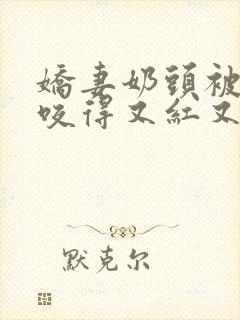 嬌妻奶頭被
咬得又紅又
默克尔